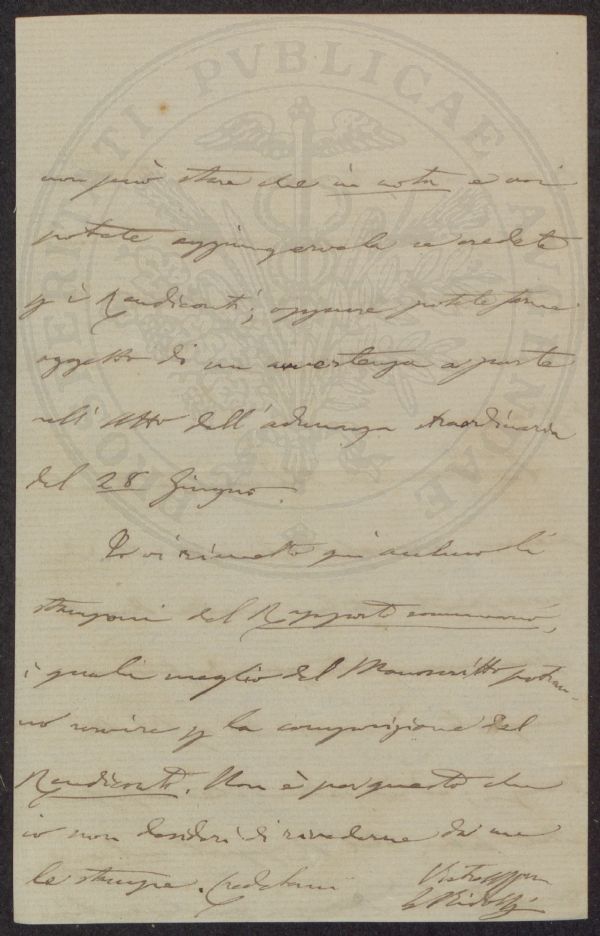 PROSPERITATI PVBLICAE AVGENDAE
non può stare che in nota e voi
potete aggiungervela se credete
p i Rendiconti; oppure potete farne
oggetto di un avvertenza a parte
nell'Atto dell'adunanza straordinaria
del 28 Giugno.
Io vi rimetto qui anche li
stamponi del Rapporto sommario,
i quali meglio del Manoscritto potran-
no servire p la composizione del
Rendiconto. Non è per questo che
io non desideri di rivederne da me
le stampe. Credetemi Vostro
Ridolfi